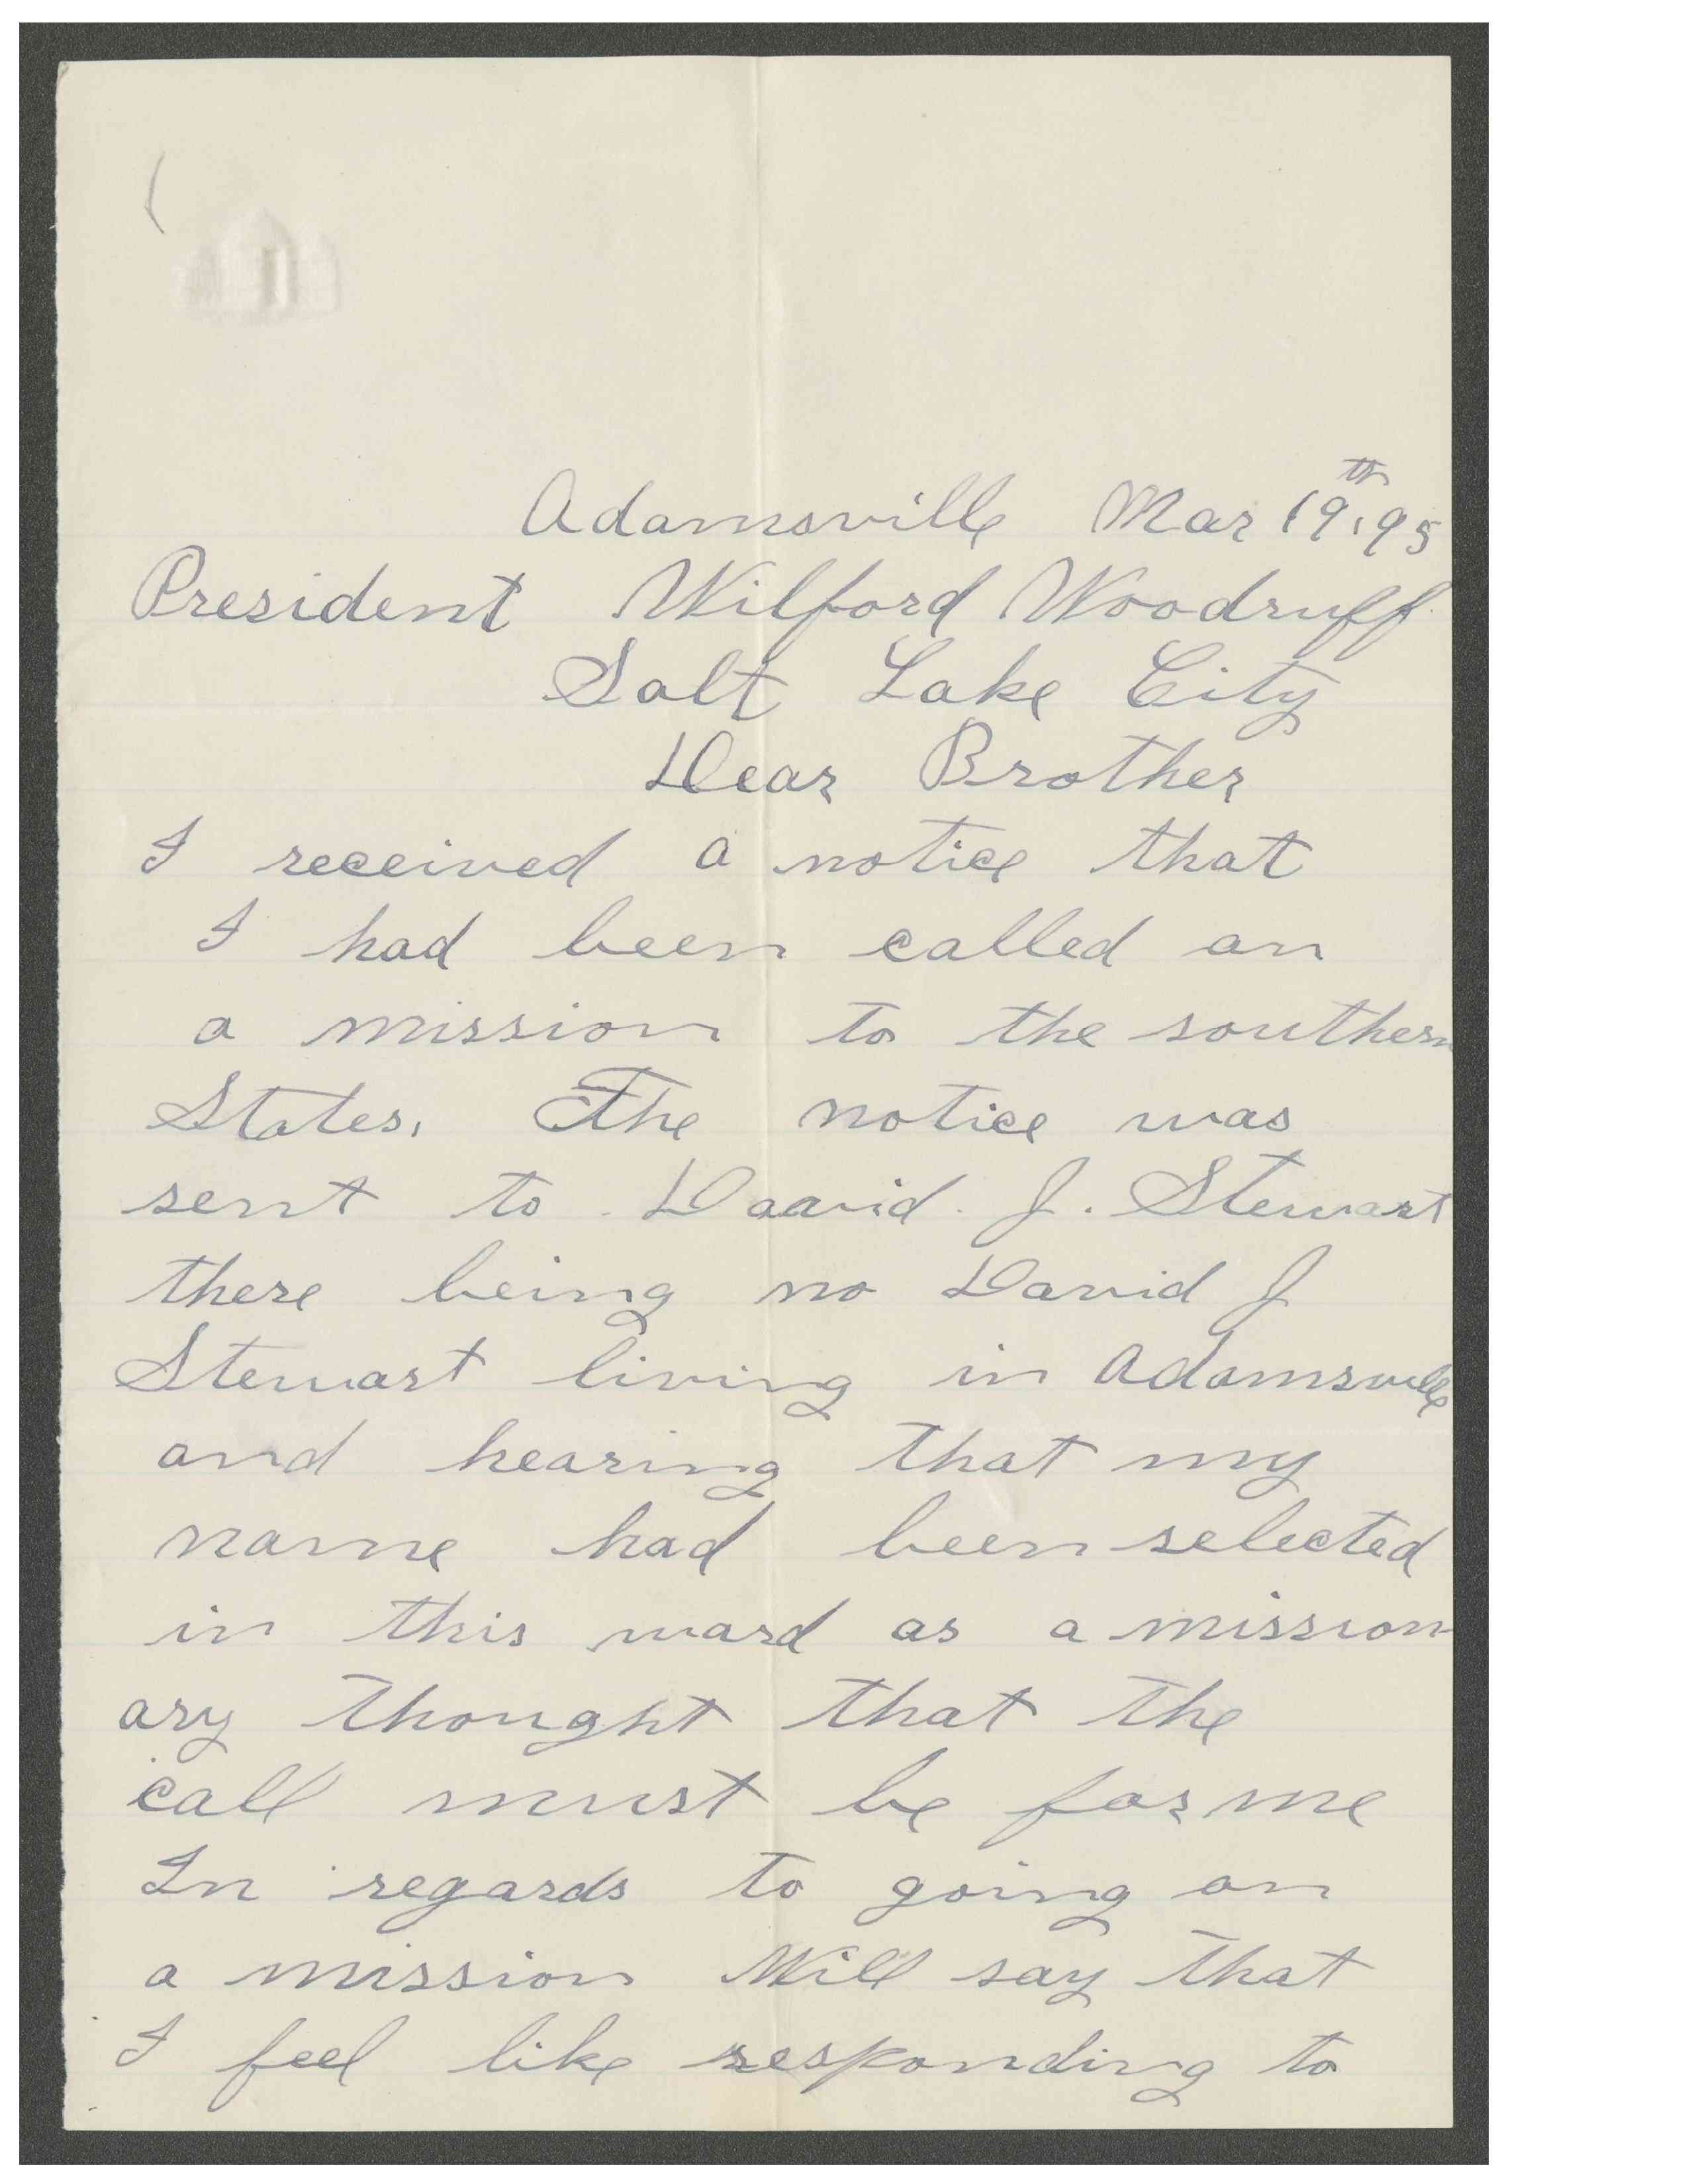 Adamsville Mar 19th, 95
President Wilford Woodruff
Salt Lake City
Dear Brother
I received a notice that
I had been called on
a mission to the southern
States. The notice was
sent to Daavid. J. Stewart
there being no David J
Stewart living in Adamsville
and hearing that my
name had been selected
in this ward as a mission
ary thought that the
call must be for me
In regards to going on
a mission Will say that
I feel like responding to